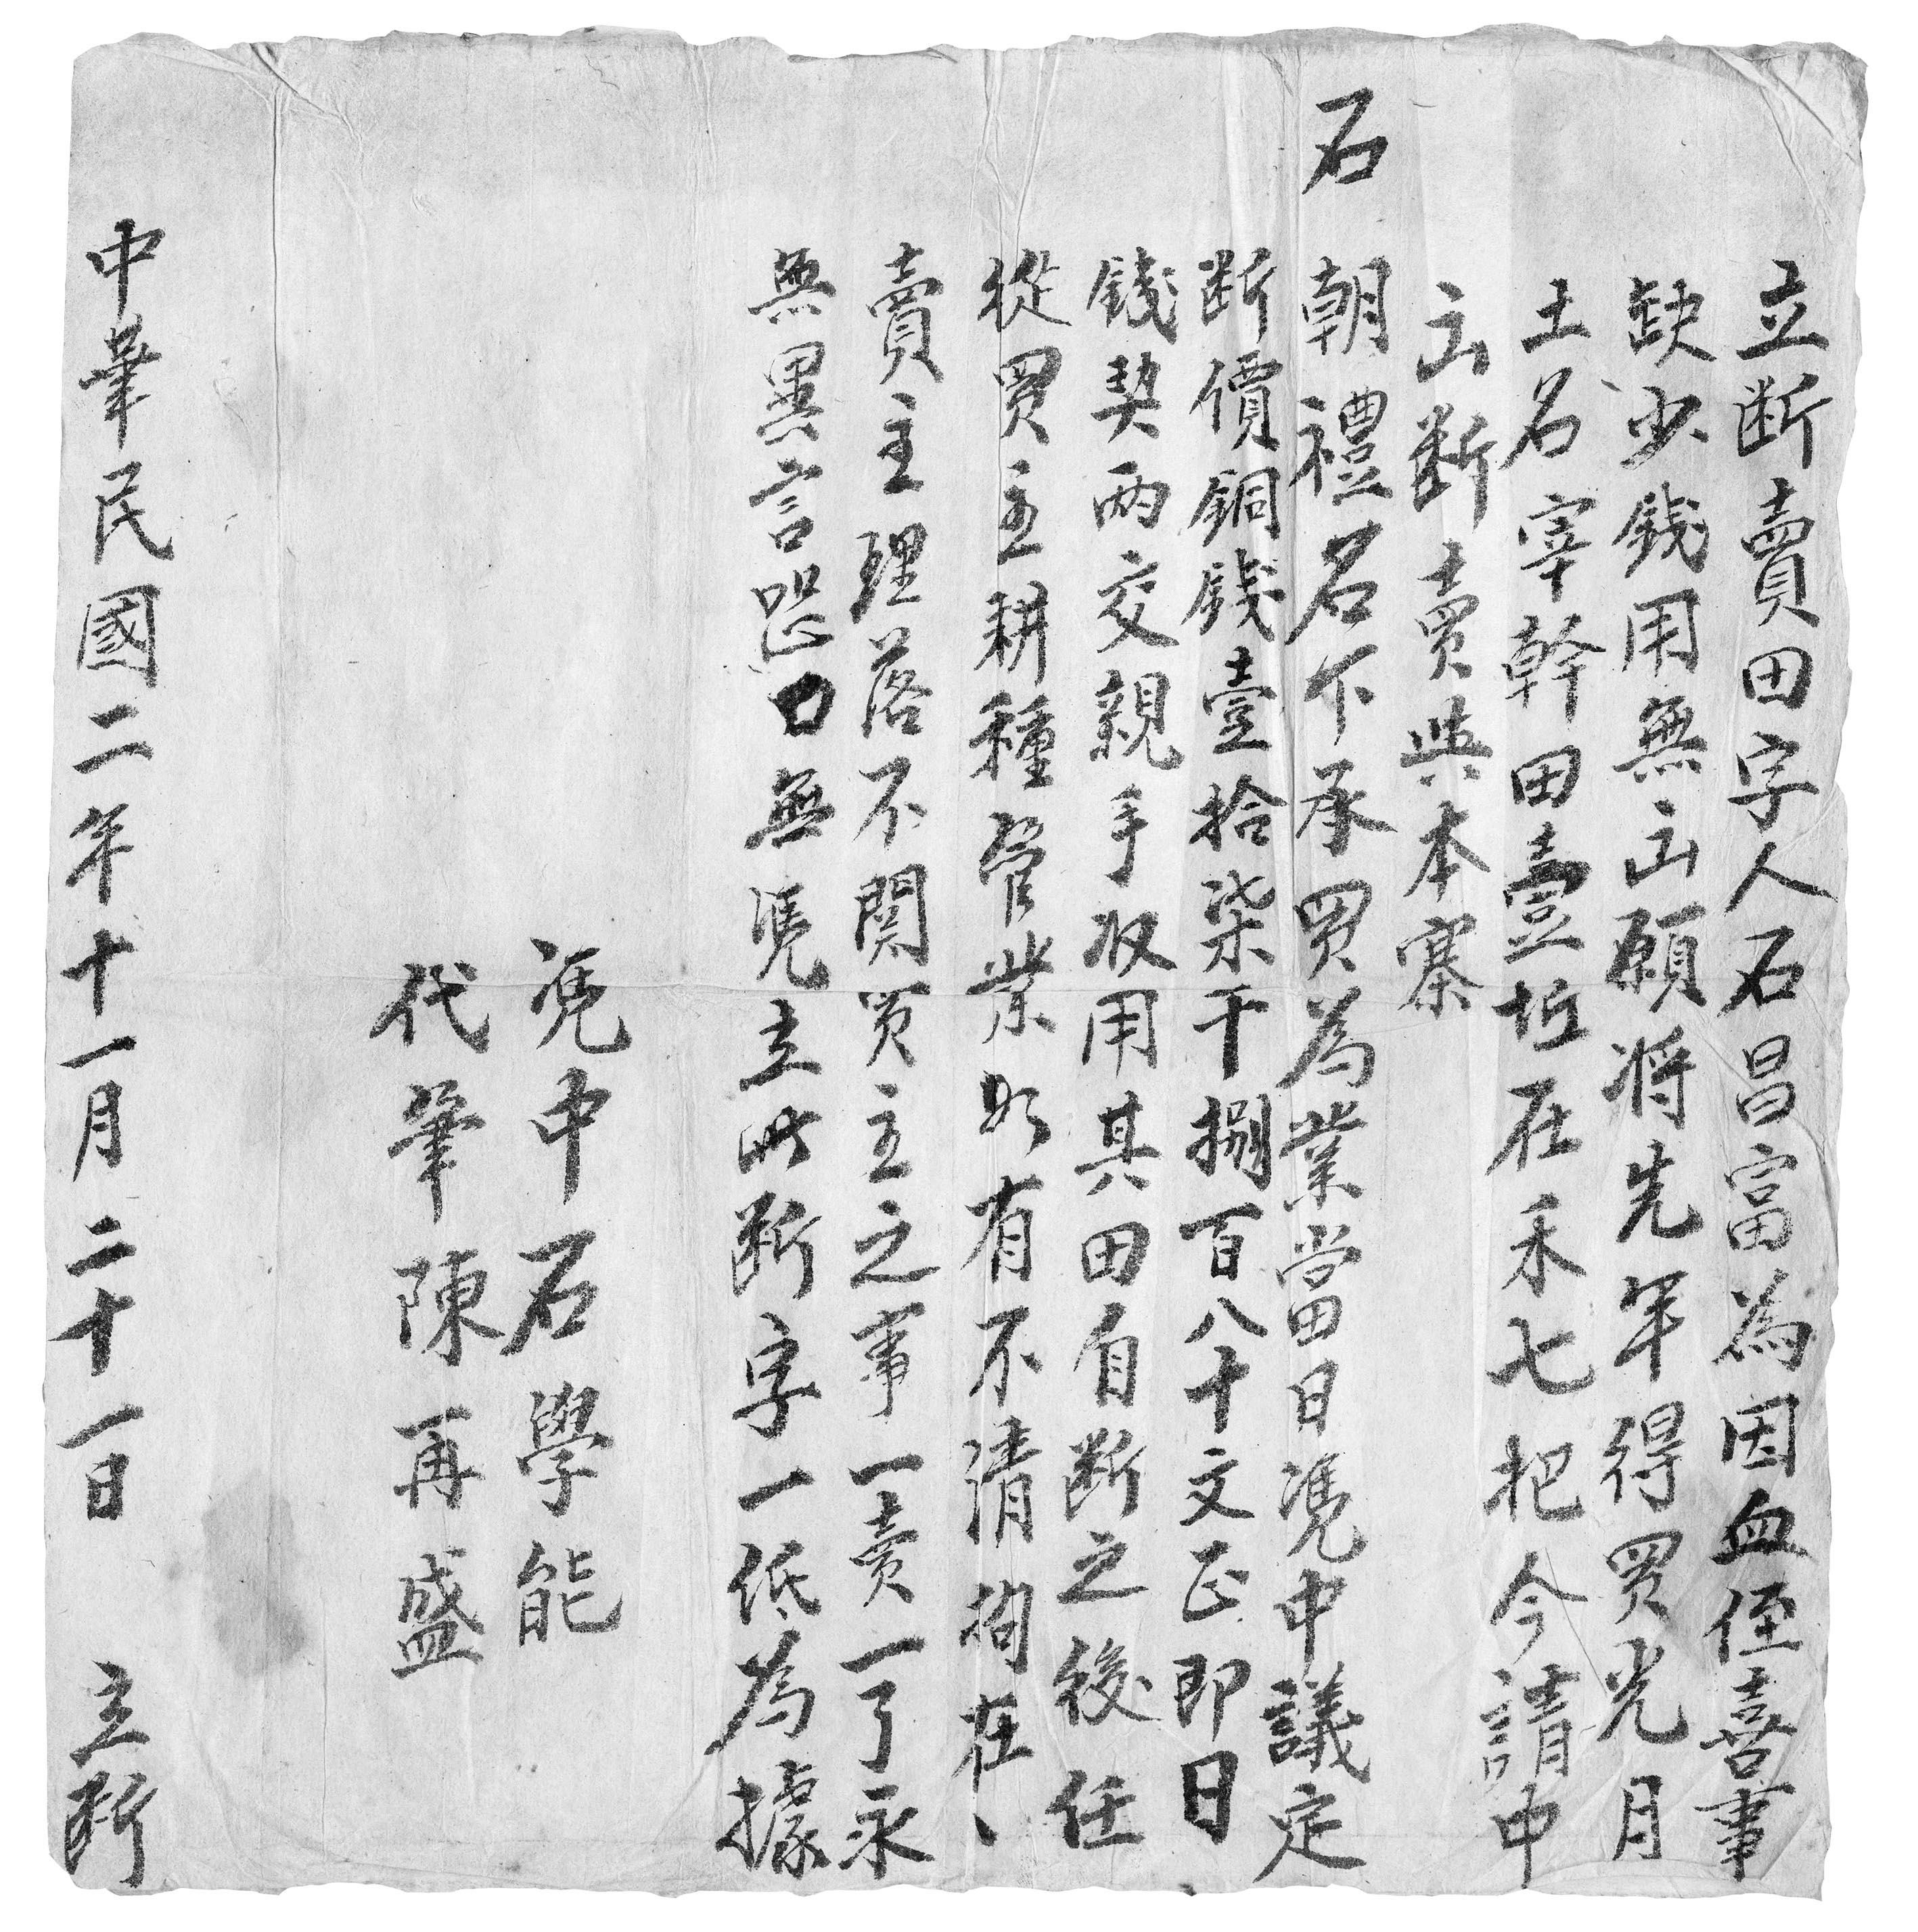 立断賣田字人石昌富為因血侄喜事
缺少錢用無出願将先年得買光月
土名宰幹田壹坵在禾七把今請中
出断賣與本寨
石朝禮名下承買為業當日憑中議定
断價銅錢壹拾柒千捌百八十文正即日
錢契兩交親手收用其田自断之後任
從買主耕種管業如有不清拘在、
賣主理落不関買主之事一賣一了永
無異言恐口無憑立此断字一紙為據
憑中石學能
代筆陳再盛
中華民國二年十一月二十一日 立断